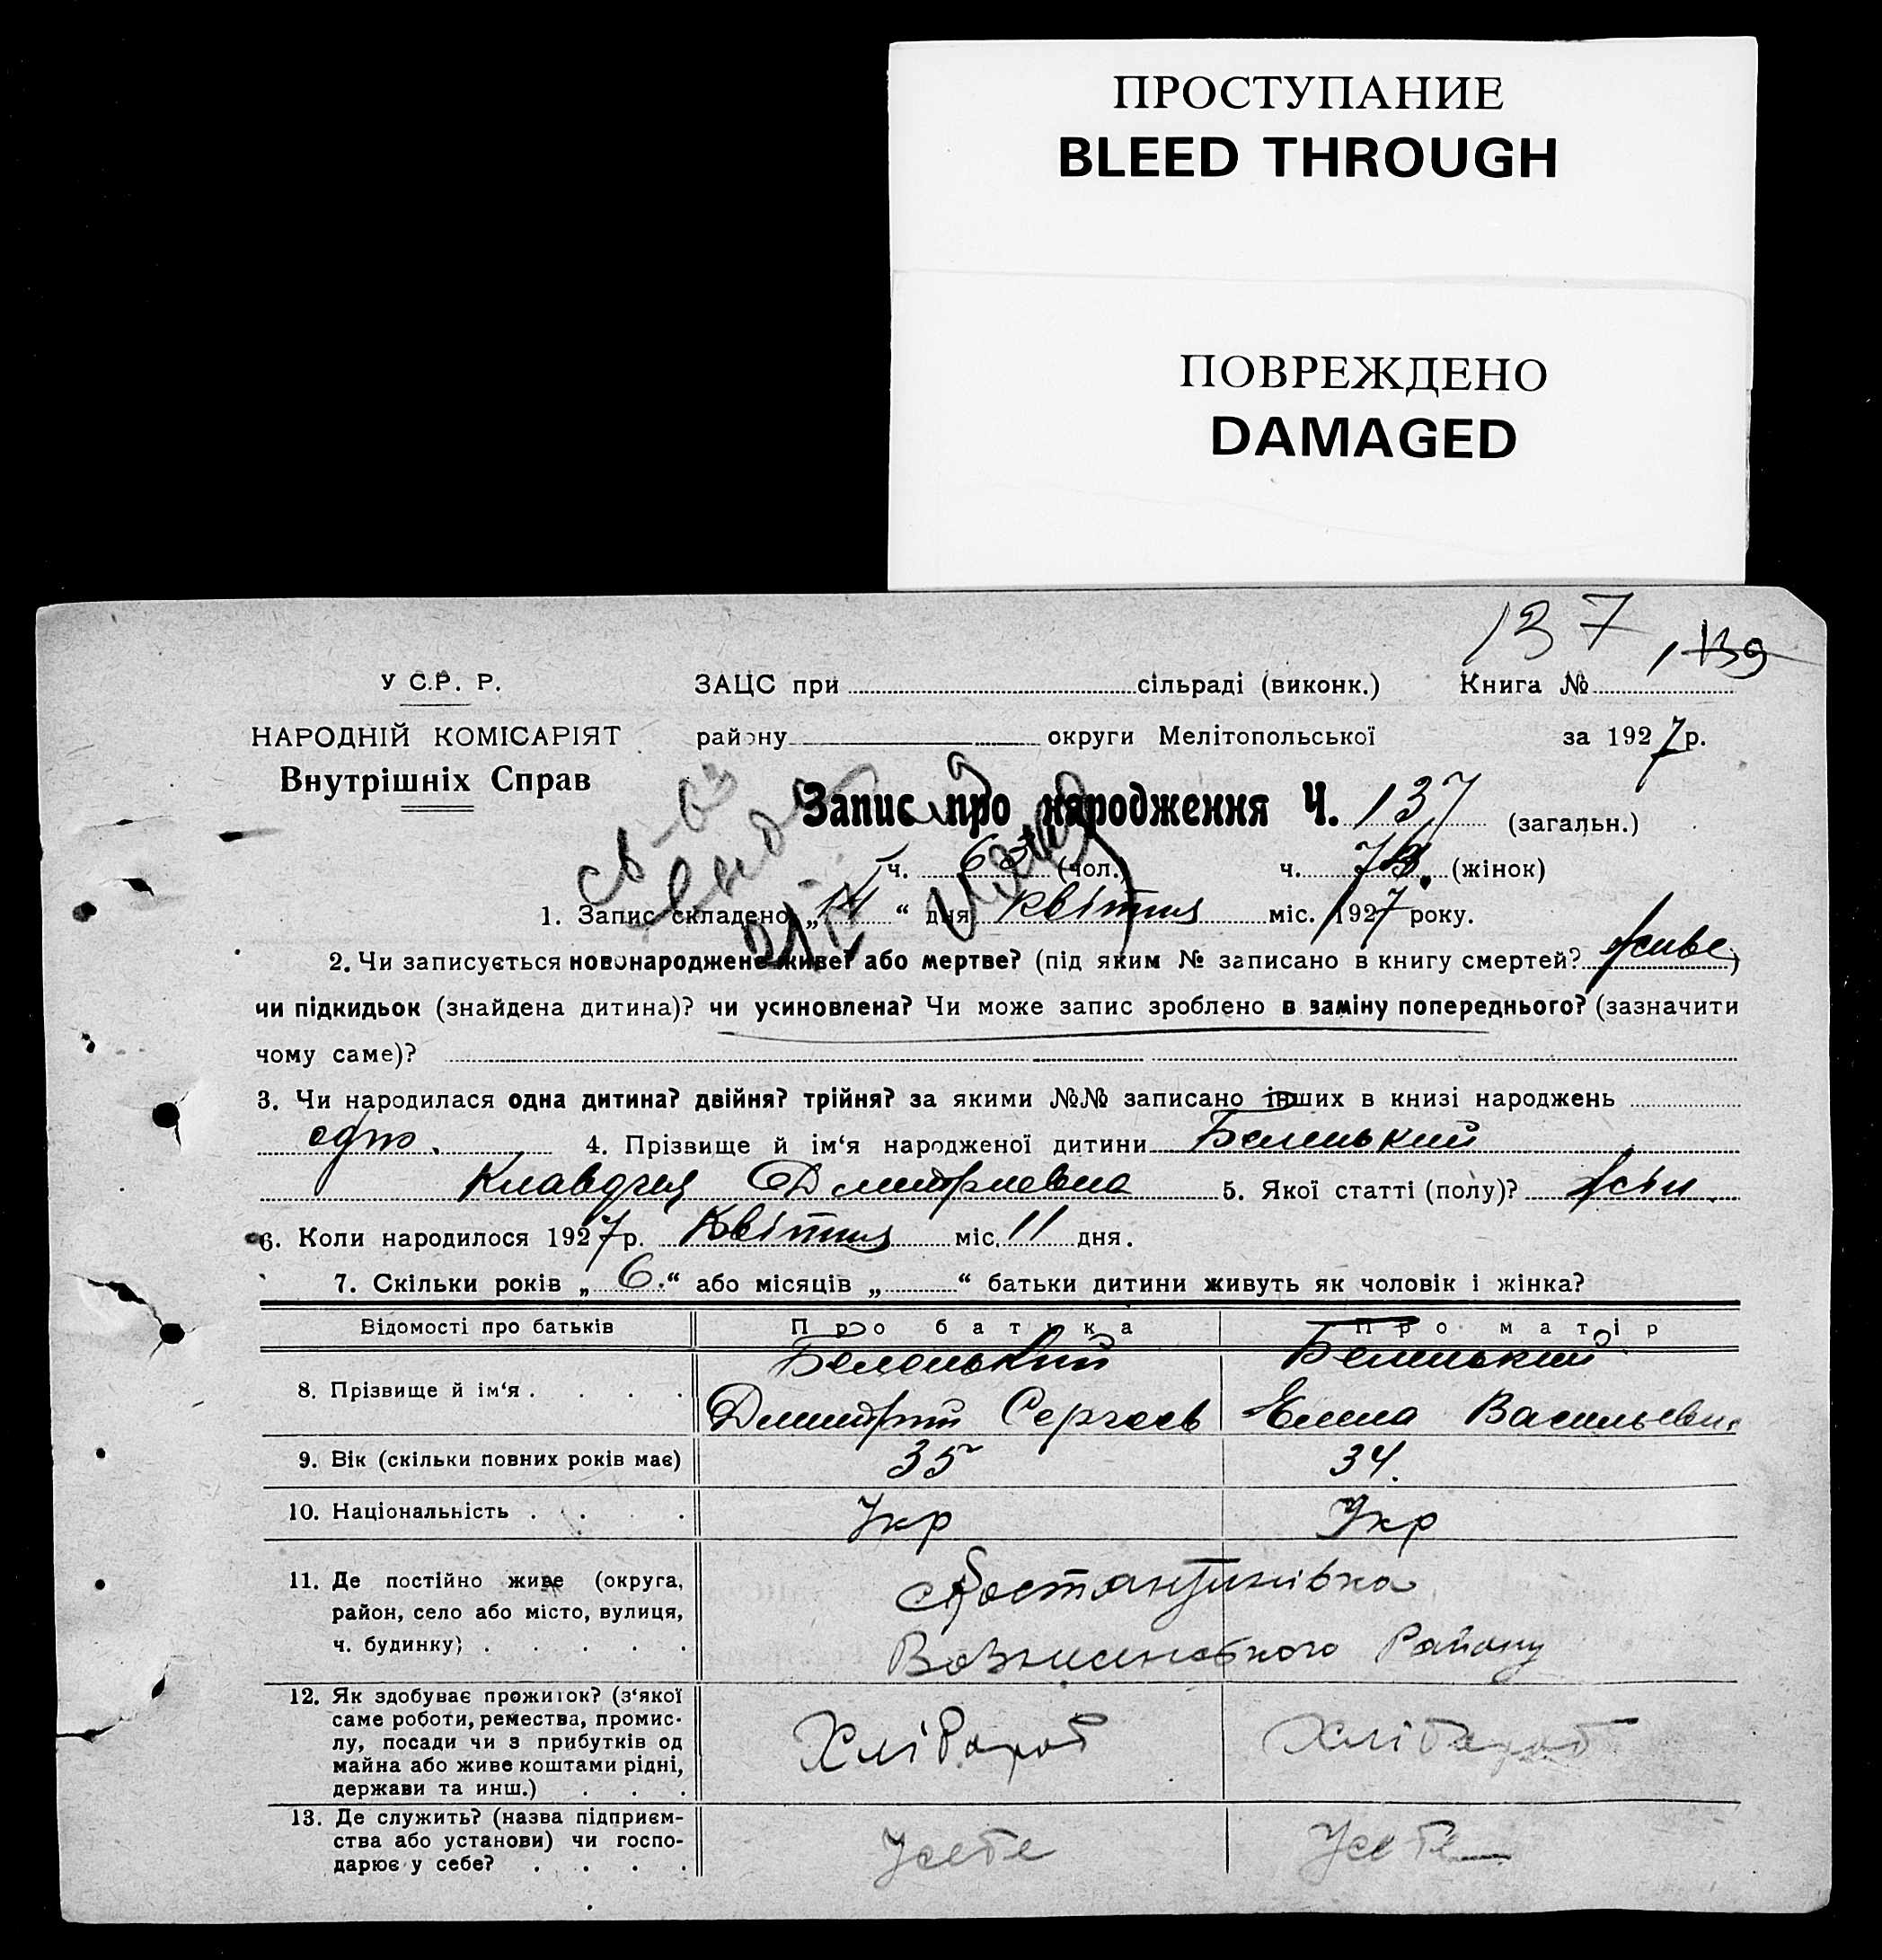 ПРОСТУПАНИЕ
BLEED THROUGH
ПОВРЕЖДЕНО
DAMAGED
137
139
У С.Р. Р. ЗАЦС при сільраді (виконк.) Книга №
НАРОДНІЙ КОМІСАРІЯТ району округи Мелітопольської за 1927 р.
Внутрішніх Справ
Запис про народження Ч. 137 (загальн.)
ч. 63 (чол.) ч. (жінок)
1. Запис складено „14“ дня квітня міс. 1927 року.
2. Чи записується новонароджене живе? або мертве? (під яким № записано в книгу смертей? живе)
чи підкидьок (знайдена дитина)? чи усиновлена? Чи може запис зроблено в заміну попереднього? (зазначити
чому саме)?
3. Чи народилася одна дитина? двійня? трійня? за якими №№ записано інших в книзі народжень
одно. 4. Прізвище й ім‘я народженої дитини Беленький
Клавдия Дмитриевна 5. Якої статті (полу)? жін.
6. Коли народилося 1927 р. Квітня міс. 11 дня.
7. Скільки років „6.“ або місяців „ “ батьки дитини живуть як чоловік і жінка?
Відомості про батьків Про батька Про матір
Беленький Беленький
8. Прізвище й ім‘я . . . .
Дмитрий Сергеев Елена Васильевна
9. Вік (скільки повних років має) 35 34.
10. Національність . . . . Укр Укр
11. Де постійно живе (округа, Костянтинівка
район, село або місто, вулиця,
ч. будинку) . . . . . Вознесенського Району
12. Як здобуває прожиток? (з‘якої
саме роботи, ремества, промис-
лу, посади чи з прибутків од Хлібороб Хлібороб
майна або живе коштами рідні,
держави та инш.) . . .
13. Де служить? (назва підприєм-
ства або установи) чи госпо- Усебе Усебе
дарює у себе? . . . .